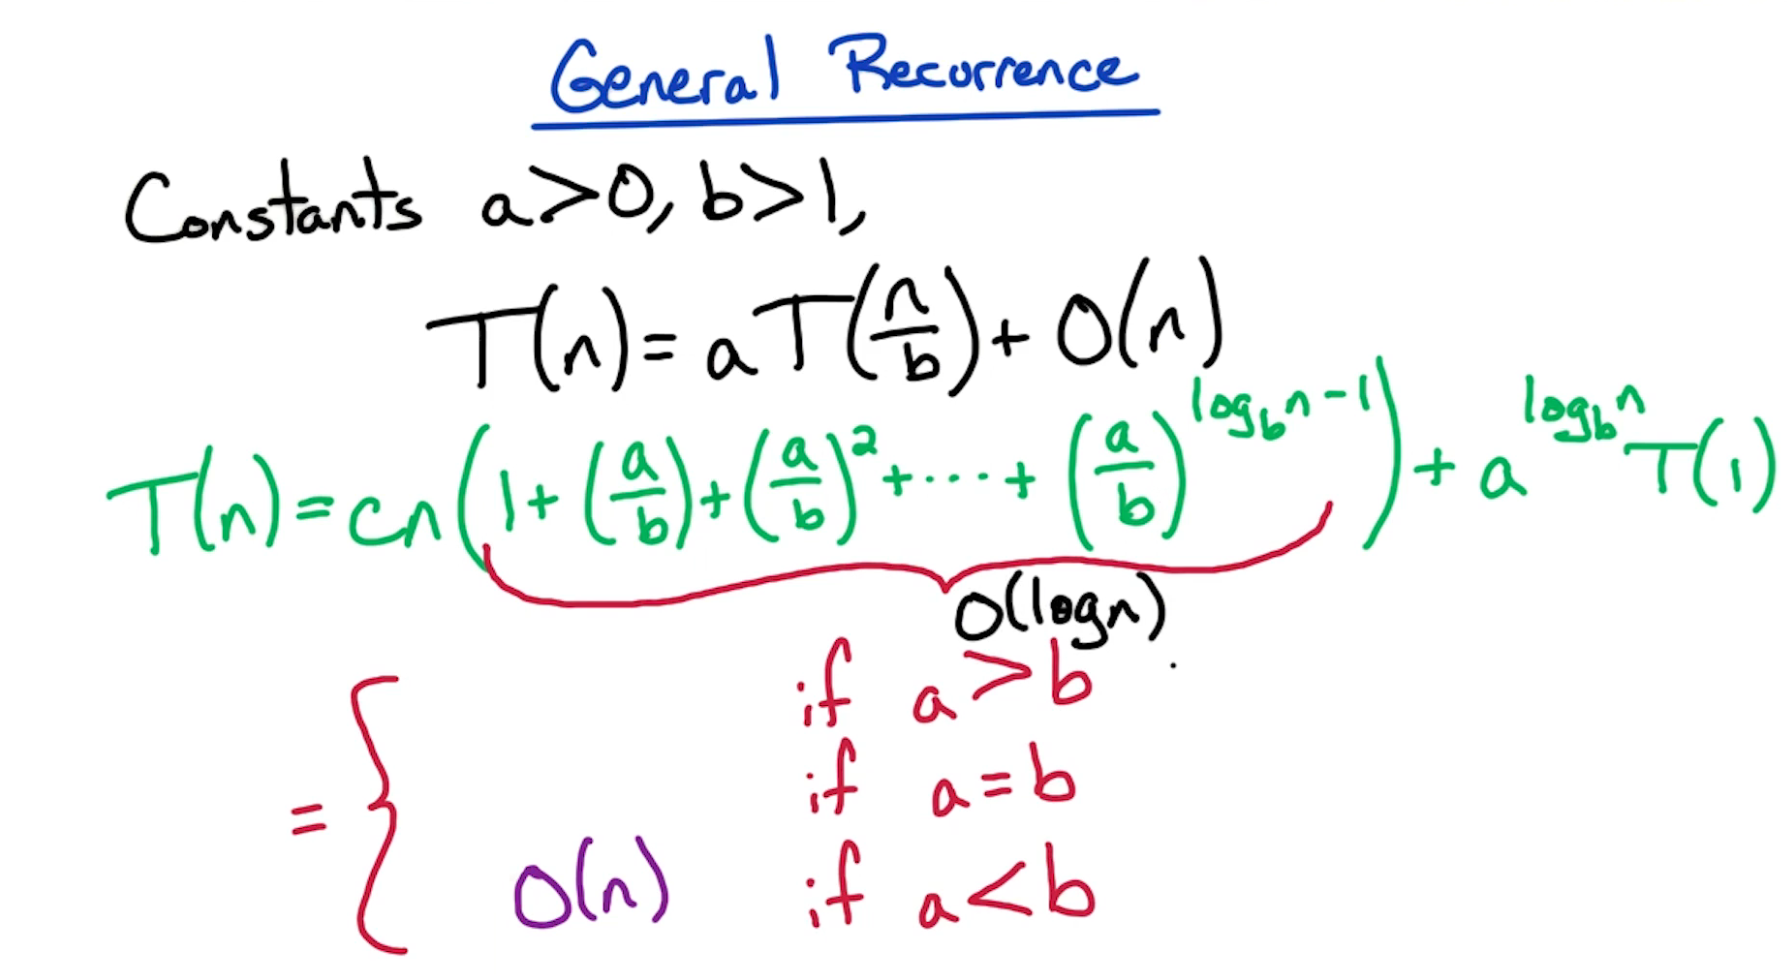 General Recurrence
Constants a>0, b>1,
T(n) = aT(n/b) + O(n)
T(n) = cn(1 + (a/b) + (a/b)² + ··· + (a/b)^(log_b n - 1)) + a^(log_b n) T(1)
O(log n)
= { if a > b
if a = b
O(n) if a < b